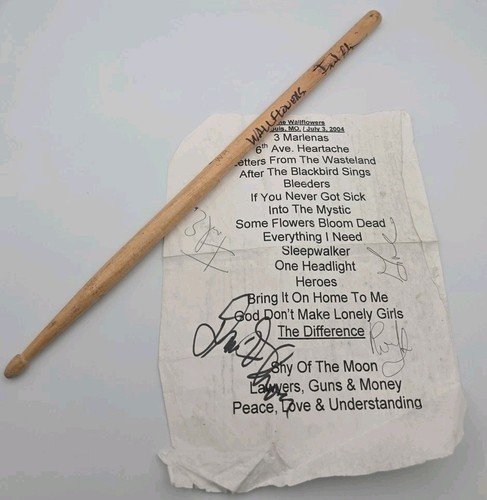 WALLFLOWERS
The Wallflowers
Louis, MO. / July 3, 2004
3 Marlenas
6th Ave. Heartache
etters From The Wasteland
After The Blackbird Sings
Bleeders
If You Never Got Sick
Into The Mystic
Some Flowers Bloom Dead
Everything I Need
Sleepwalker
One Headlight
Heroes
Bring It On Home To Me
God Don't Make Lonely Girls
The Difference
Shy Of The Moon
Lawyers, Guns & Money
Peace, Love & Understanding